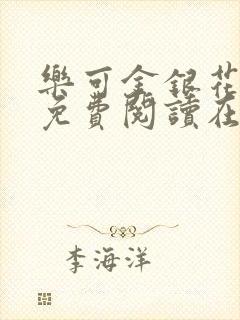 樂可金銀花
免費閱讀在
李海洋